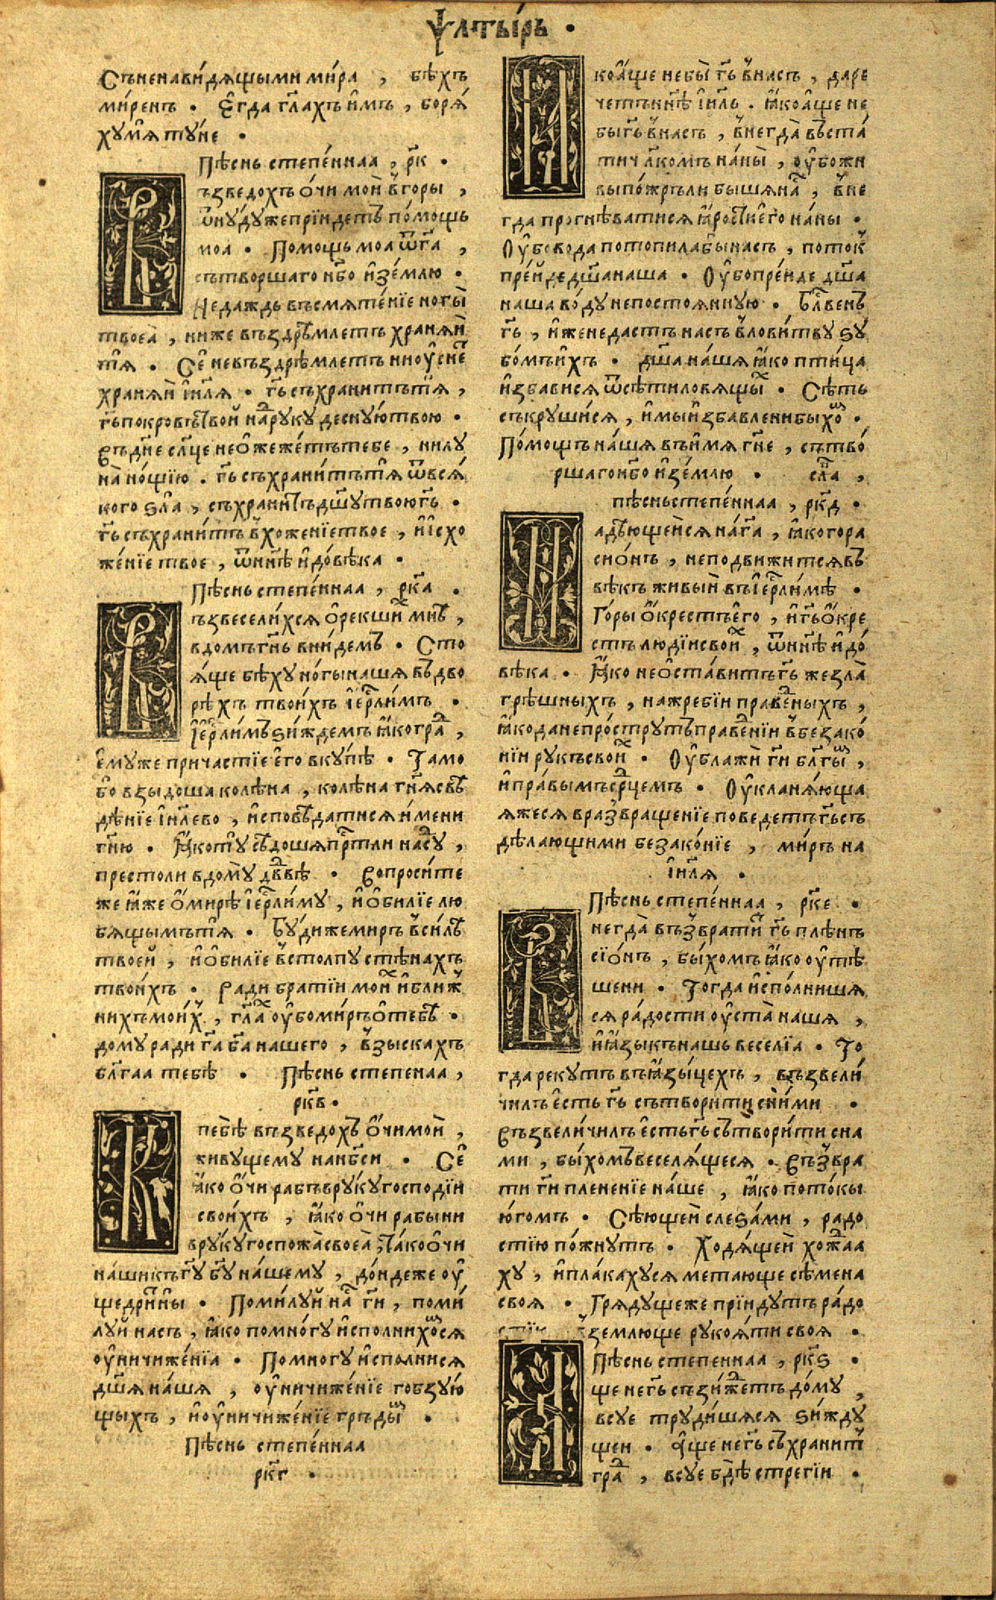 Ѱл҃тьі́рь ·
Съненави́дѧщыми ми́ра , бѣ́хъ
ми́ренъ · Є҆гда гл҃ахъ и҆́мъ , борѧ́
хумѧ тꙋ́не ·
Пѣ́снь степе́ннаа , рк҃ ·
ъзведо́хъ о҆́чи моѝ в̾го́ры ,
ѿнꙋ́дꙋже прїи́детъ по́мощь
моа̀ · По́мощь моа̀ ѿг҃а ,
сътво́ршаго нб҃о и҆зе́млю ·
Неда́ждь въсмѧте́нїе ногы̀
твоеа̀ , ни́же въздре́млетъ хранѧ́и
тѧ̀ · Се́ невъздре́млетъ ниоу҆́снетъ
хранѧ́и і҆и҃лѧ · гь҃ съхрани́тътѧ ,
гь҃ покро́въ тво́й нарꙋ́кꙋ деснꙋ́ютвою ·
Въдн҃е сл҃нце неѡ҆жеже́тъ тебе , нилꙋ
на̀ но́щїю . гь҃ съхрани́тътѧ ѿвсѧ́
кого ѕла̀ , съхрани́тъ дш҃ꙋтвою́ гь҃ ·
гь҃ съхрани́тъ в̾хожде́нїетвое , и҆и҆схо
же́нїе твое , ѿни́нѣ и҆до́вѣка ·
Пѣ́снь степе́ннаа , рк҃а ·
ъзвесели́хсѧ ѡ҆ре́кшихъ мнѣ̀ ,
в̾до́мъ гн҃ь вни́демъ · Сто
ѧ́ще бѣ́хꙋ но́гы на́шѧ въ дво
рѣ́хъ твои́хъ і҆ер҃ли́мъ ·
І҆ер҃ли́мъ ѕи́ждемъ ꙗ҆́когра́дъ ,
є҆мꙋ́же прича́стїе є҆го вкꙋ́пѣ · Та́мо
бо взы́доша колѣ́на , колѣ́на гн҃ѧ свѣ
дѣ́нїе і҆и҃лево , и҆сповѣ́датисѧ и҆́мени
гн҃ю · Ꙗ҆́котꙋ̀ сѣ́дошѧ прⷭ҇тли насꙋдꙋ̀ ,
престоли в̾домꙋ̀ дв҃двѣ · Вопроси́те
же ꙗ҆́же ѡ҆ми́рѣ і҆ер҃ли́мꙋ , и҆ѻ҆би́лїе лю
бѧ́щымътѧ · Бꙋ́дижеми́ръ в̾си́лѣ
твоѐй , и҆ѻ҆би́лїе в̾столпꙋ стѣ́нахъ
твои́хъ · Ра́ди бра́тїи моѐй и҆бли́ж
нихъ мои́хъ , гл҃ахъ оу҆́бо ми́ръ ѡ҆тебѣ̀ ·
до́мꙋ ра́ди г҃а б҃а на́шего , взыска́хъ
бл҃гаа тебѣ · Пѣ́снь степе́наа ,
рк҃в ·
пебѣ̀ възведо́хъ о҆́чимоѝ ,
живꙋ́щемꙋ нанб҃си · Се́
ꙗ҆́ко о҆́чи ра́бъ врꙋкꙋ̀ господі́и
свои́хъ , ꙗ҆́ко о҆́чи рабы́ни
врꙋкꙋ̀ госпожа̀ своеа̀ , Та́ко о҆́чи
на́ши къ гꙋ҃ бꙋ҃ на́шемꙋ , до́ндеже оу҆
ще́дритъ ны · Поми́лꙋй на́съ гн҃и , поми́
лꙋй на́съ , ꙗ҆́ко помно́гꙋ и҆спо́лнихомсѧ
оу҆ничиже́нїа · Помно́гꙋ и҆спо́лнисѧ
дш҃ѧ на́шѧ , оу҆ничиже́нїе гобзꙋ́ю
щыхъ , и҆оу҆ничиже́нїе гръ́дыхъ ·
Пѣ́снь степе́ннаа
рк҃г ·
ко́а҆ще не бы̀ гь҃ в̾на́съ , да́ре
че́тъ ни́нѣ і҆и҃ль . ꙗ҆́коа҆́ще не
бы́ гь҃ в̾на́съ , в̾негда̀ въ́ста
ти чл҃комъ на́ны̀ , оу҆́бо жи
вы по́жръли бы́шѧ на́съ , в̾не
гда̀ прогнѣ́ватисѧ ꙗ҆́рости є҆го на́ны ·
Оу҆́бо вода̀ потопи́ла бы́ на́съ , пото́къ
пре́йде дш҃а на́ша · Оу҆́бо пре́йде дш҃а
на́ша во́дꙋ непостоѧ́ннꙋю · Бл҃гве́нъ
гь҃ , и҆́же неда́стъ на́съ в̾лови́твꙋ ѕꙋ
бо́мъ и҆́хъ · дш҃а на́шѧ ꙗ҆́ко пти́ца
и҆зба́висѧ ѿсѣ́ти ловѧ́щыхъ · Сѣ́ть
съкрꙋши́сѧ , и҆мы́ и҆зба́влени бы́хомъ ·
По́мощъ на́шѧ въи҆́мѧ гн҃е , сътво́
ршаго нб҃о и҆зе́млю · сла́ва ,
пѣ́снь степе́ннаа , рк҃д ·
адѣ́ющейсѧ на́ г҃а , ꙗ҆́ко гора
сио́нъ , неподви́житсѧ въ
вѣ́къ живы́й въі҆ер҃ли́мѣ ·
Го́ры ѡ҆́крестъ є҆го , и҆гь҃ ѡ҆кре
стъ люді́й свои́хъ , ѿни́нѣ и҆до́
вѣка · Ꙗ҆́ко неѡ҆ста́витъ гь҃ жезла̀
грѣ́шныхъ , нажре́бїи пра́ведныхъ ,
ꙗ҆́кода непро́стрꙋтъ пра́веднїи в̾безако́
нїи рꙋ́къ свои́хъ · Оу҆блажѝ гн҃и бл҃гы́мъ ,
и҆пра́вымъ ср҃цемъ · Оу҆кланѧ́юща
ѧжесѧ вразвраще́нїе поведе́тъ гь҃ съ
дѣ́лающими безако́нїе , ми́ръ на
і҆и҃лѧ ·
Пѣ́снь степе́ннаа , рк҃е ·
негда̀ възврати́ти гь҃ плѣ́нъ
сїо́нъ , бы́хомъ ꙗ҆́ко оу҆тѣ́
шени · Тогда и҆спо́лнишѧ
сѧ ра́дости оу҆ста̀ на́шѧ ,
и҆ꙗ҆зы́къ на́шь весе́лїа · То
гда реку́тъ въꙗ҆зы́цехъ , възвели́
чилъ є҆́сть гь҃ сътвори́ти сни́ми ·
Възвели́чилъ є҆́сть гь҃ сътвори́ти сна
ми , бы́хомъ веселѧ́щесѧ · Възвра
ти гн҃и плене́нїе на́ше , ꙗ҆́ко пото́кы
ю҆́гомъ · Сѣ́ющей слеза́ми , радо
стїю по́жнꙋтъ · Ходѧ́щей хожда́а
хꙋ , и҆пла́кахꙋсѧ мета́юще сѣ́мена
своѧ · Грѧдꙋ́щеже прїи́дꙋтъ ра́до
зе́млюще рꙋкоѧ́ти своѧ ·
Пѣ́снь степе́ннаа , рк҃ѕ ·
ще не гь҃ съзи́ждетъ до́мꙋ ,
всꙋе трꙋди́шѧсѧ ѕи́ждꙋ
щеи · А҆́ще не гь҃ съхрани́тъ
гра́дъ , всꙋ́е бдѣ̀ стрегі́и ·